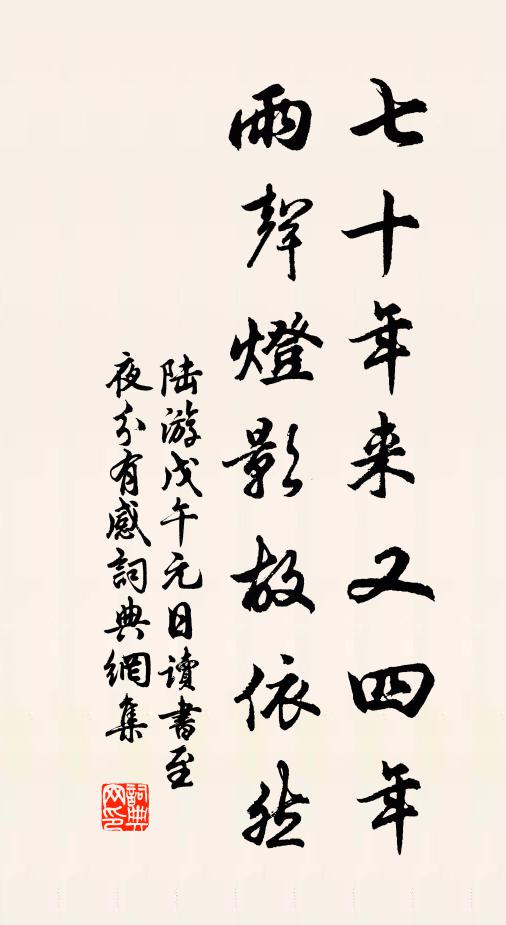 七十年来又四年
雨聲燈影故依然
陆游戊午元日读書至
夜分有感詞典網集
詞典网印